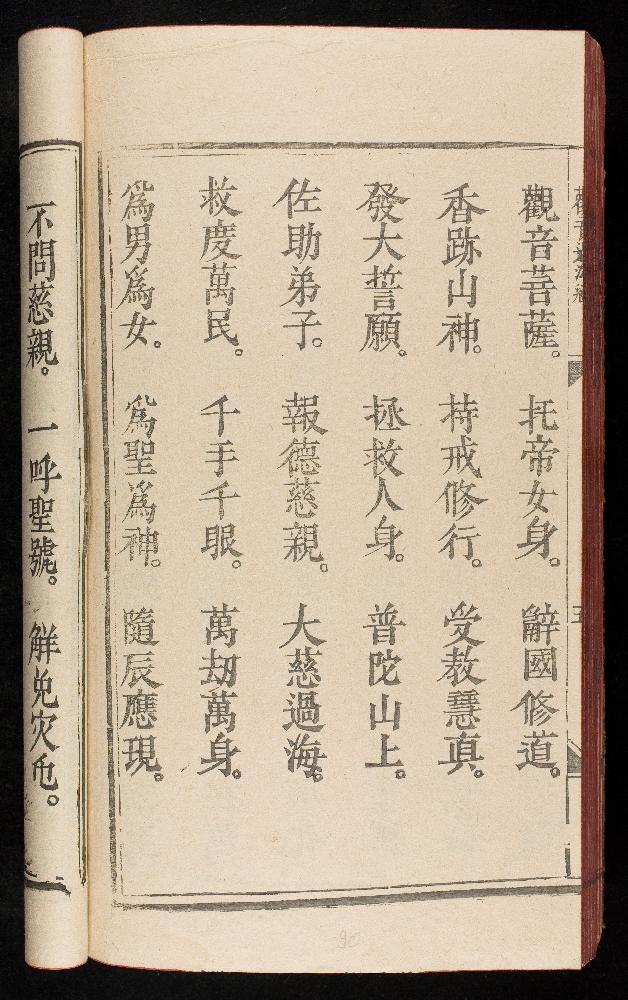 觀音菩薩。托帝女身。辭國修道。
香跡山神。持戒修行。受教慧真。
發大誓願。拯救人身。普陀山上。
佐助弟子。報德慈親。大慈過海。
救度萬民。千手千眼。萬劫萬身。
為男為女。為聖為神。隨辰應現。
不問慈親。一呼聖號。解免灾危。
五
90